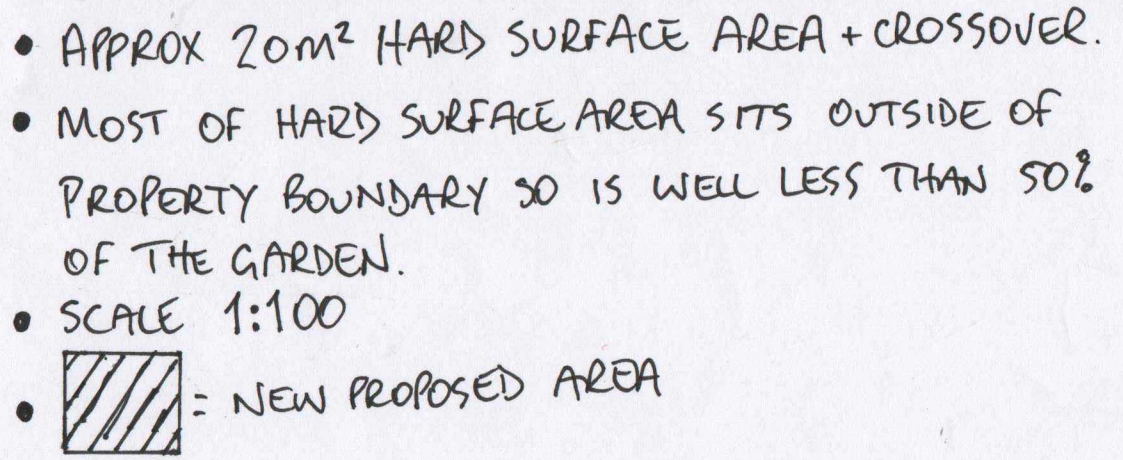 • APPROX 20m² HARD SURFACE AREA + CROSSOVER.
• MOST OF HARD SURFACE AREA SITS OUTSIDE OF
PROPERTY BOUNDARY SO IS WELL LESS THAN 50%
OF THE GARDEN.
• SCALE 1:100
• = NEW PROPOSED AREA